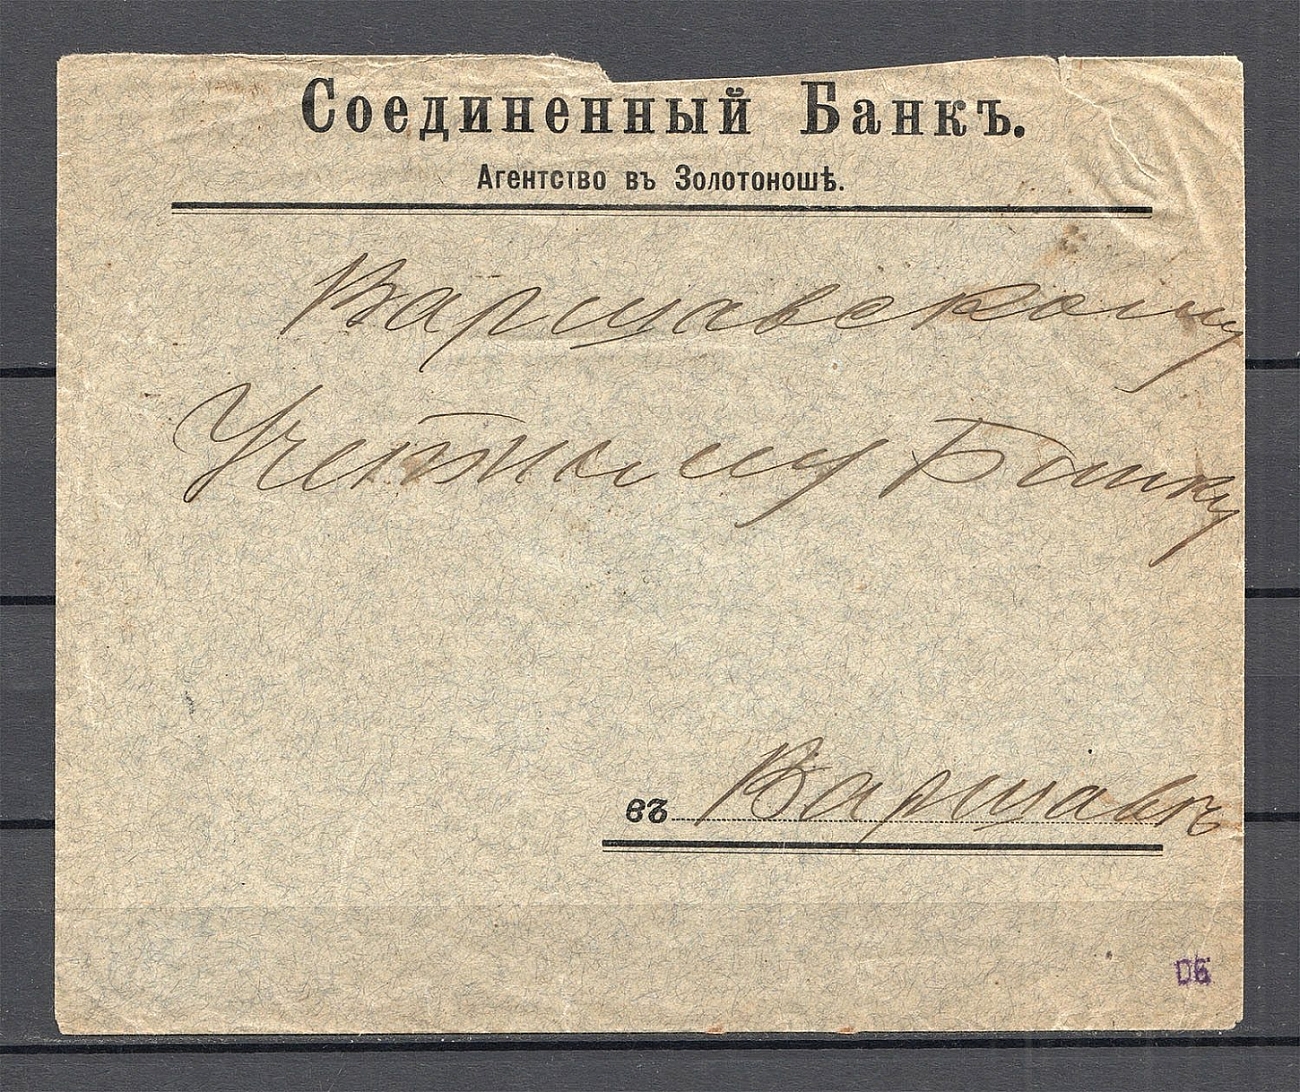 Соединенный Банкъ.
Агентство въ Золотоношѣ.
Варшавскому
Учетному Банку
въ Варшавѣ
ОБ